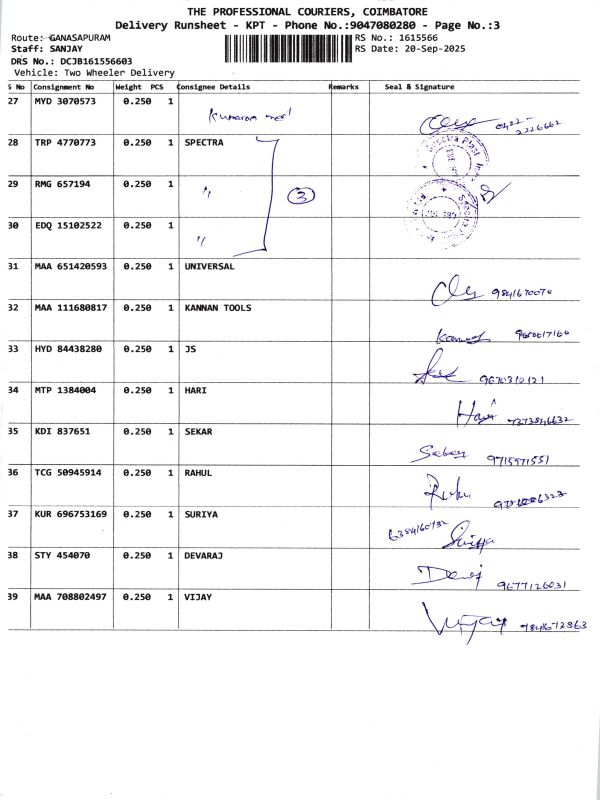 THE PROFESSIONAL COURIERS, COIMBATORE
Delivery Runsheet - KPT - Phone No.:9047080280 - Page No.:3
Route: GANASAPURAM RS No.: 1615566
Staff: SANJAY RS Date: 20-Sep-2025
DRS No.: DCJB161556603
Vehicle: Two Wheeler Delivery
S No Consignment No Weight PCS Consignee Details Remarks Seal & Signature
27 MYD 3070573 0.250 1 Kumaran 0422-2226662
28 TRP 4770773 0.250 1 SPECTRA
29 RMG 657194 0.250 1 " 3
30 EDQ 15102522 0.250 1 "
31 MAA 651420593 0.250 1 UNIVERSAL 9841670070
32 MAA 111680817 0.250 1 KANNAN TOOLS
33 HYD 84438280 0.250 1 JS
34 MTP 1384004 0.250 1 HARI Hari 7373846632
35 KDI 837651 0.250 1 SEKAR Sekar 9715971551
36 TCG 50945914 0.250 1 RAHUL
37 KUR 696753169 0.250 1 SURIYA Suriya
38 STY 454070 0.250 1 DEVARAJ 9677126031
39 MAA 708802497 0.250 1 VIJAY Vijay 9841672863